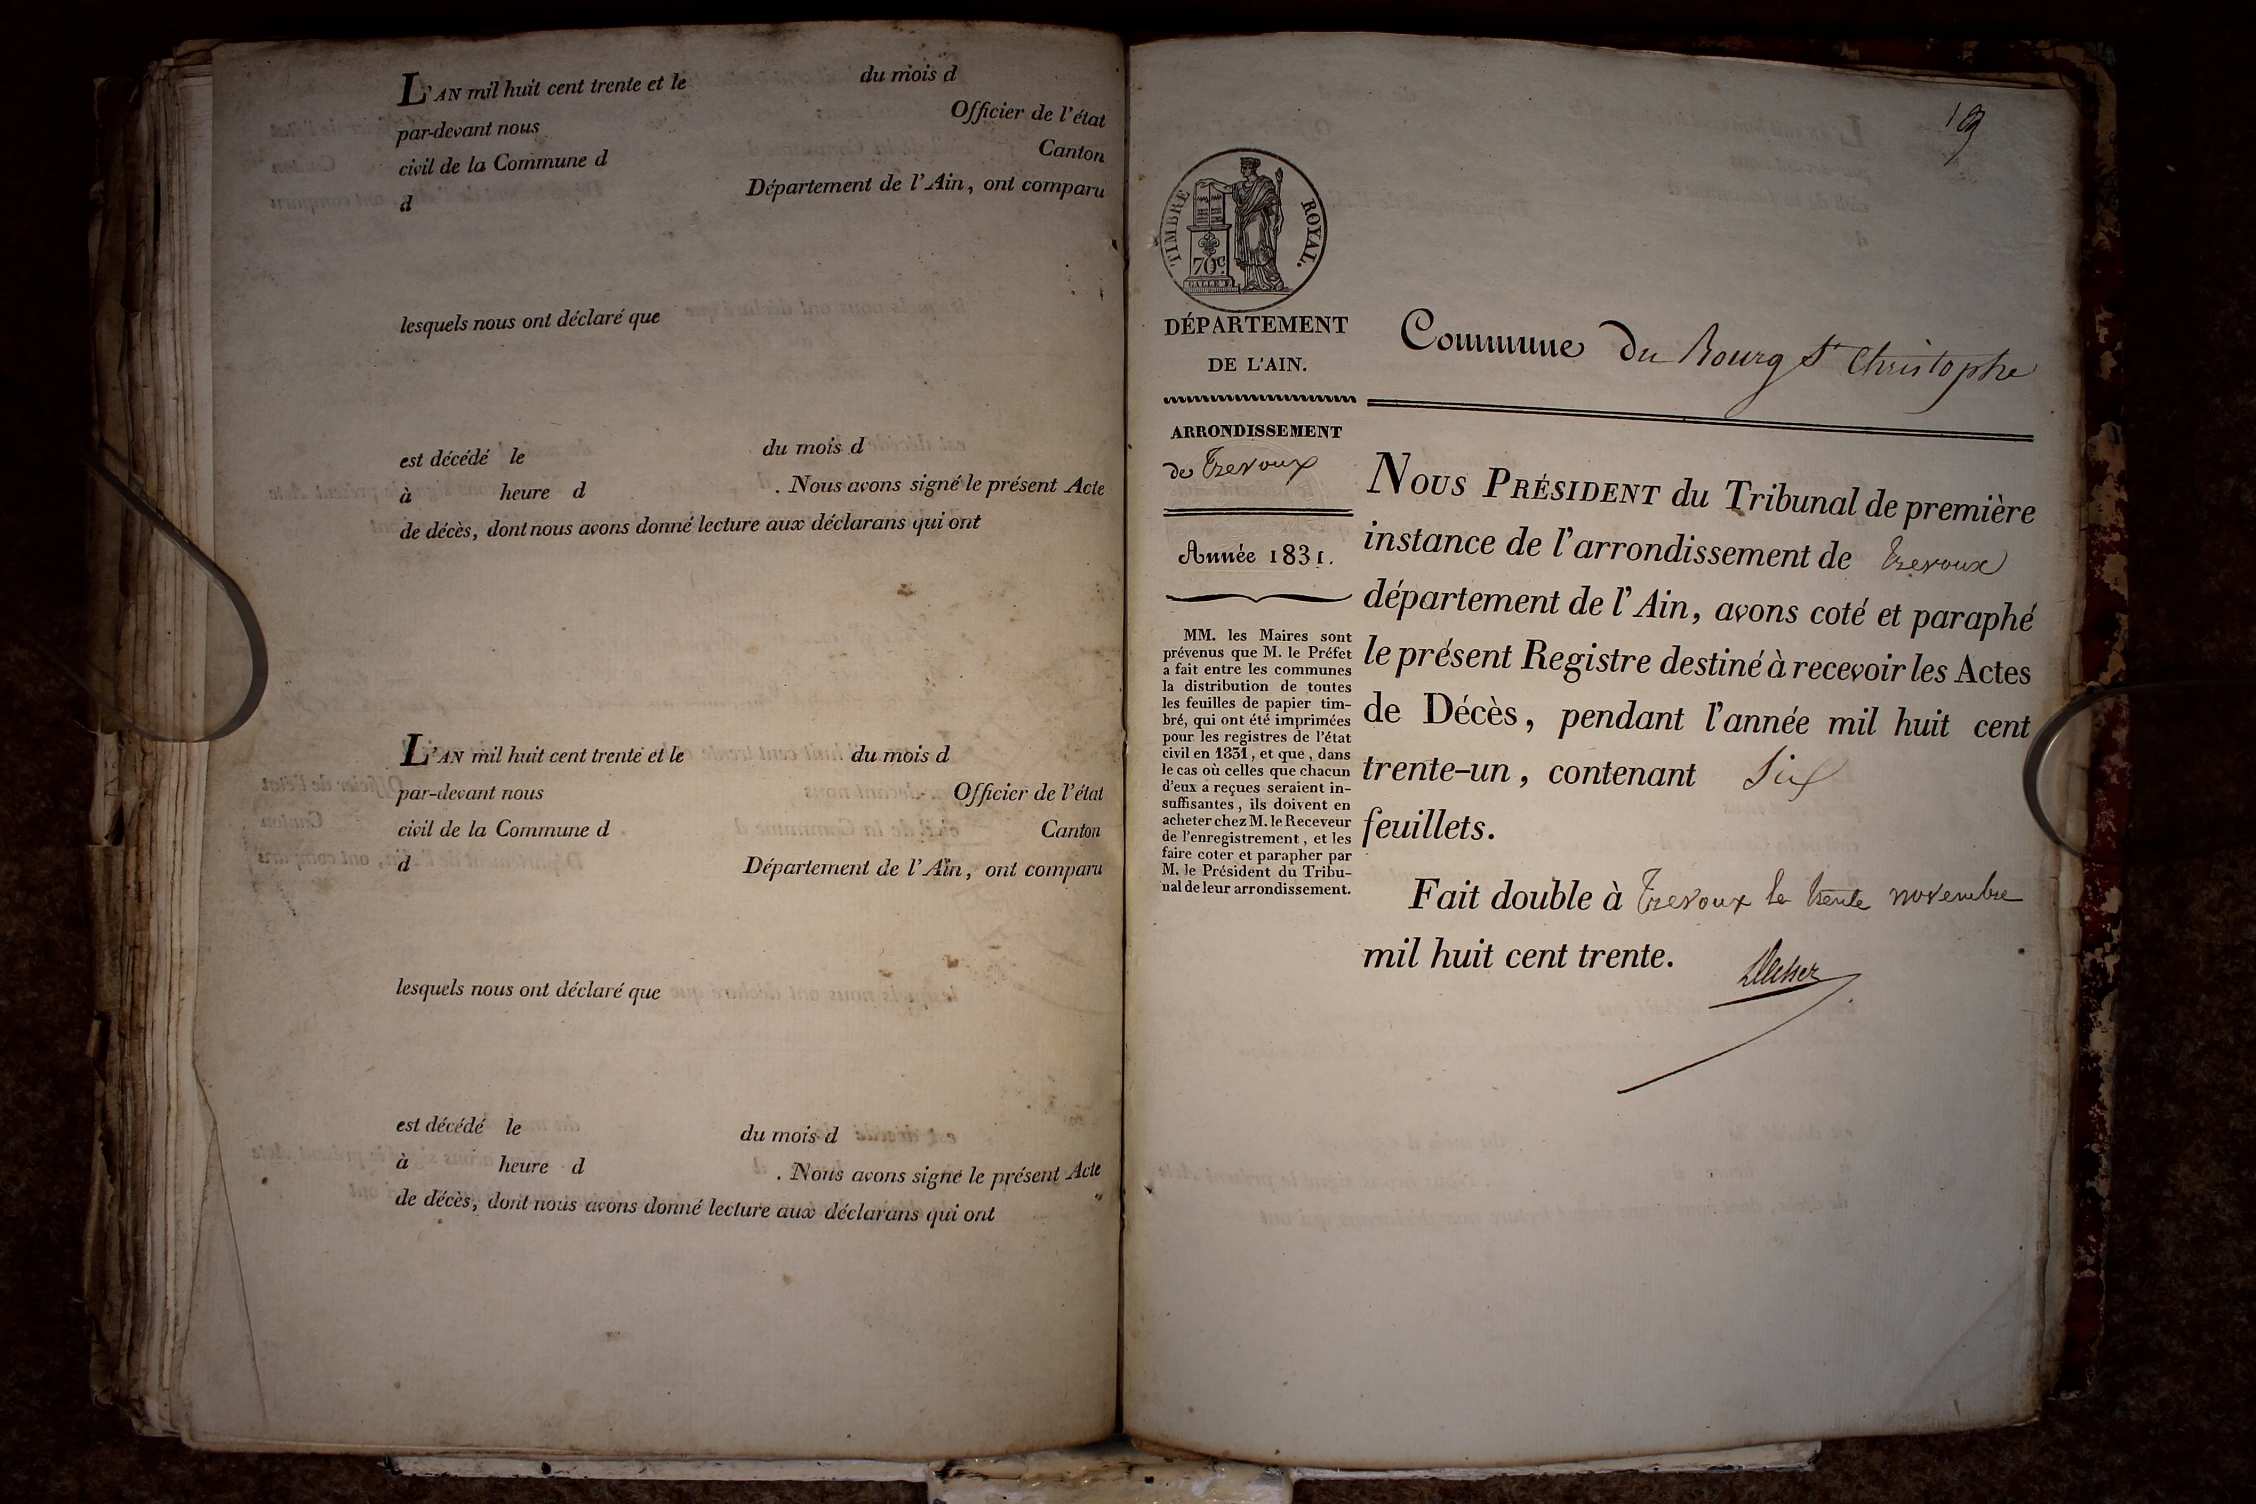 L'AN mil huit cent trente et le du mois d
par-devant nous Officier de l'état
civil de la Commune d Canton
d Département de l'Ain, ont comparu
lesquels nous ont déclaré que
est décédé le du mois d
à heure d . Nous avons signé le présent Acte
de décès, dont nous avons donné lecture aux déclarans qui ont
L'AN mil huit cent trente et le du mois d
par-devant nous Officier de l'état
civil de la Commune d Canton
d Département de l'Ain, ont comparu
lesquels nous ont déclaré que
est décédé le du mois d
à heure d . Nous avons signé le présent Acte
de décès, dont nous avons donné lecture aux déclarans qui ont
TIMBRE ROYAL.
70c
DÉPARTEMENT
DE L'AIN.
ARRONDISSEMENT
de Trevoux
Année 1831.
MM. les Maires sont
prévenus que M. le Préfet
a fait entre les communes
la distribution de toutes
les feuilles de papier tim-
bré, qui ont été imprimées
pour les registres de l'état
civil en 1831, et que, dans
le cas où celles que chacun
d'eux a reçues seraient in-
suffisantes, ils doivent en
acheter chez M. le Receveur
de l'enregistrement, et les
faire coter et parapher par
M. le Président du Tribu-
nal de leur arrondissement.
Commune du Bourg St Christophe
NOUS PRÉSIDENT du Tribunal de première
instance de l'arrondissement de Trevoux
département de l'Ain, avons coté et paraphé
le présent Registre destiné à recevoir les Actes
de Décès, pendant l'année mil huit cent
trente-un, contenant Six
feuillets.
Fait double à Trevoux le trente novembre
mil huit cent trente.